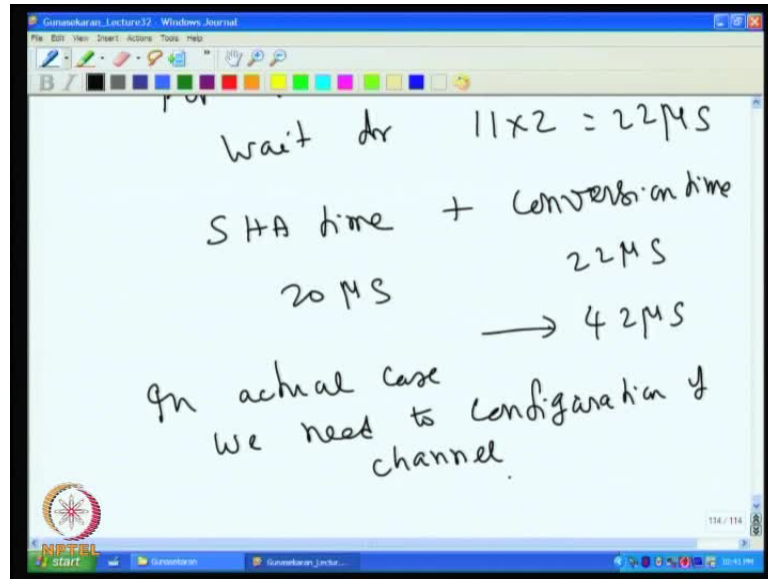 Gunasekaran_Lecture32 - Windows Journal
File Edit View Insert Actions Tools Help
B I
wait for 11x2 = 22μS
SHA time + Conversion time
20 μS 22μS
→ 42μS
In actual case
we need to configaration of
channel.
114 / 114
NPTEL
start Gunasekaran Gunasekaran_Lectur... 10:41 PM